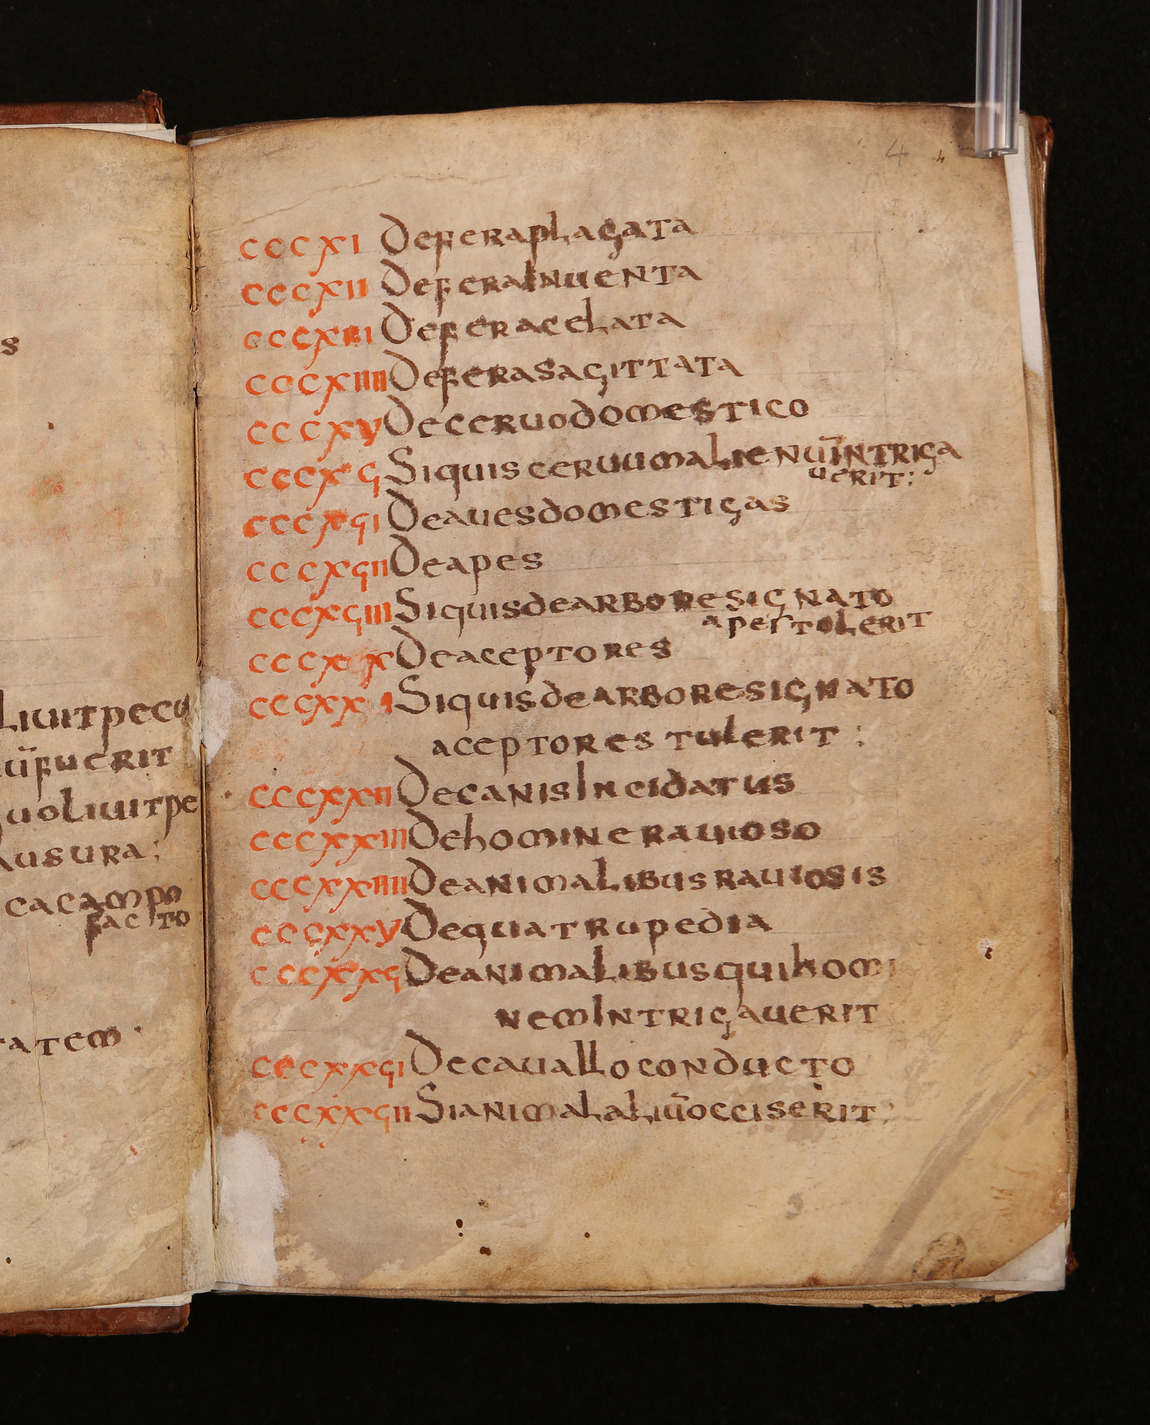 s
liuit pecu
ū fuerit
uo liuit pe
ausura;
ca campo
facto
tatem
4
CCCXI De fera plagata
CCCXII De fera inuenta
CCCXIII De fera celata
CCCXIIII De fera sagittata
CCCXV De ceruo domestico
CCCXϛ Si quis ceruum alienū intriga
uerit;
CCCXϛI De aues domesticas
CCCXϛII De apes
CCCXϛIII Si quis de arbore signato
apes tolerit
CCCXX De aceptores
CCCXXI Si quis de arbore signato
aceptores tulerit;
CCCXXII De canis incidatus
CCCXXIII De homine rauioso
CCCXXIIII De animalibus rauiosis
CCCXXV De quatrupedia
CCCXXϛ De animalibus qui homi
nem intrigauerit
CCCXXϛI De cauallo conducto
CCCXXϛII Si animal aliū occiserit;